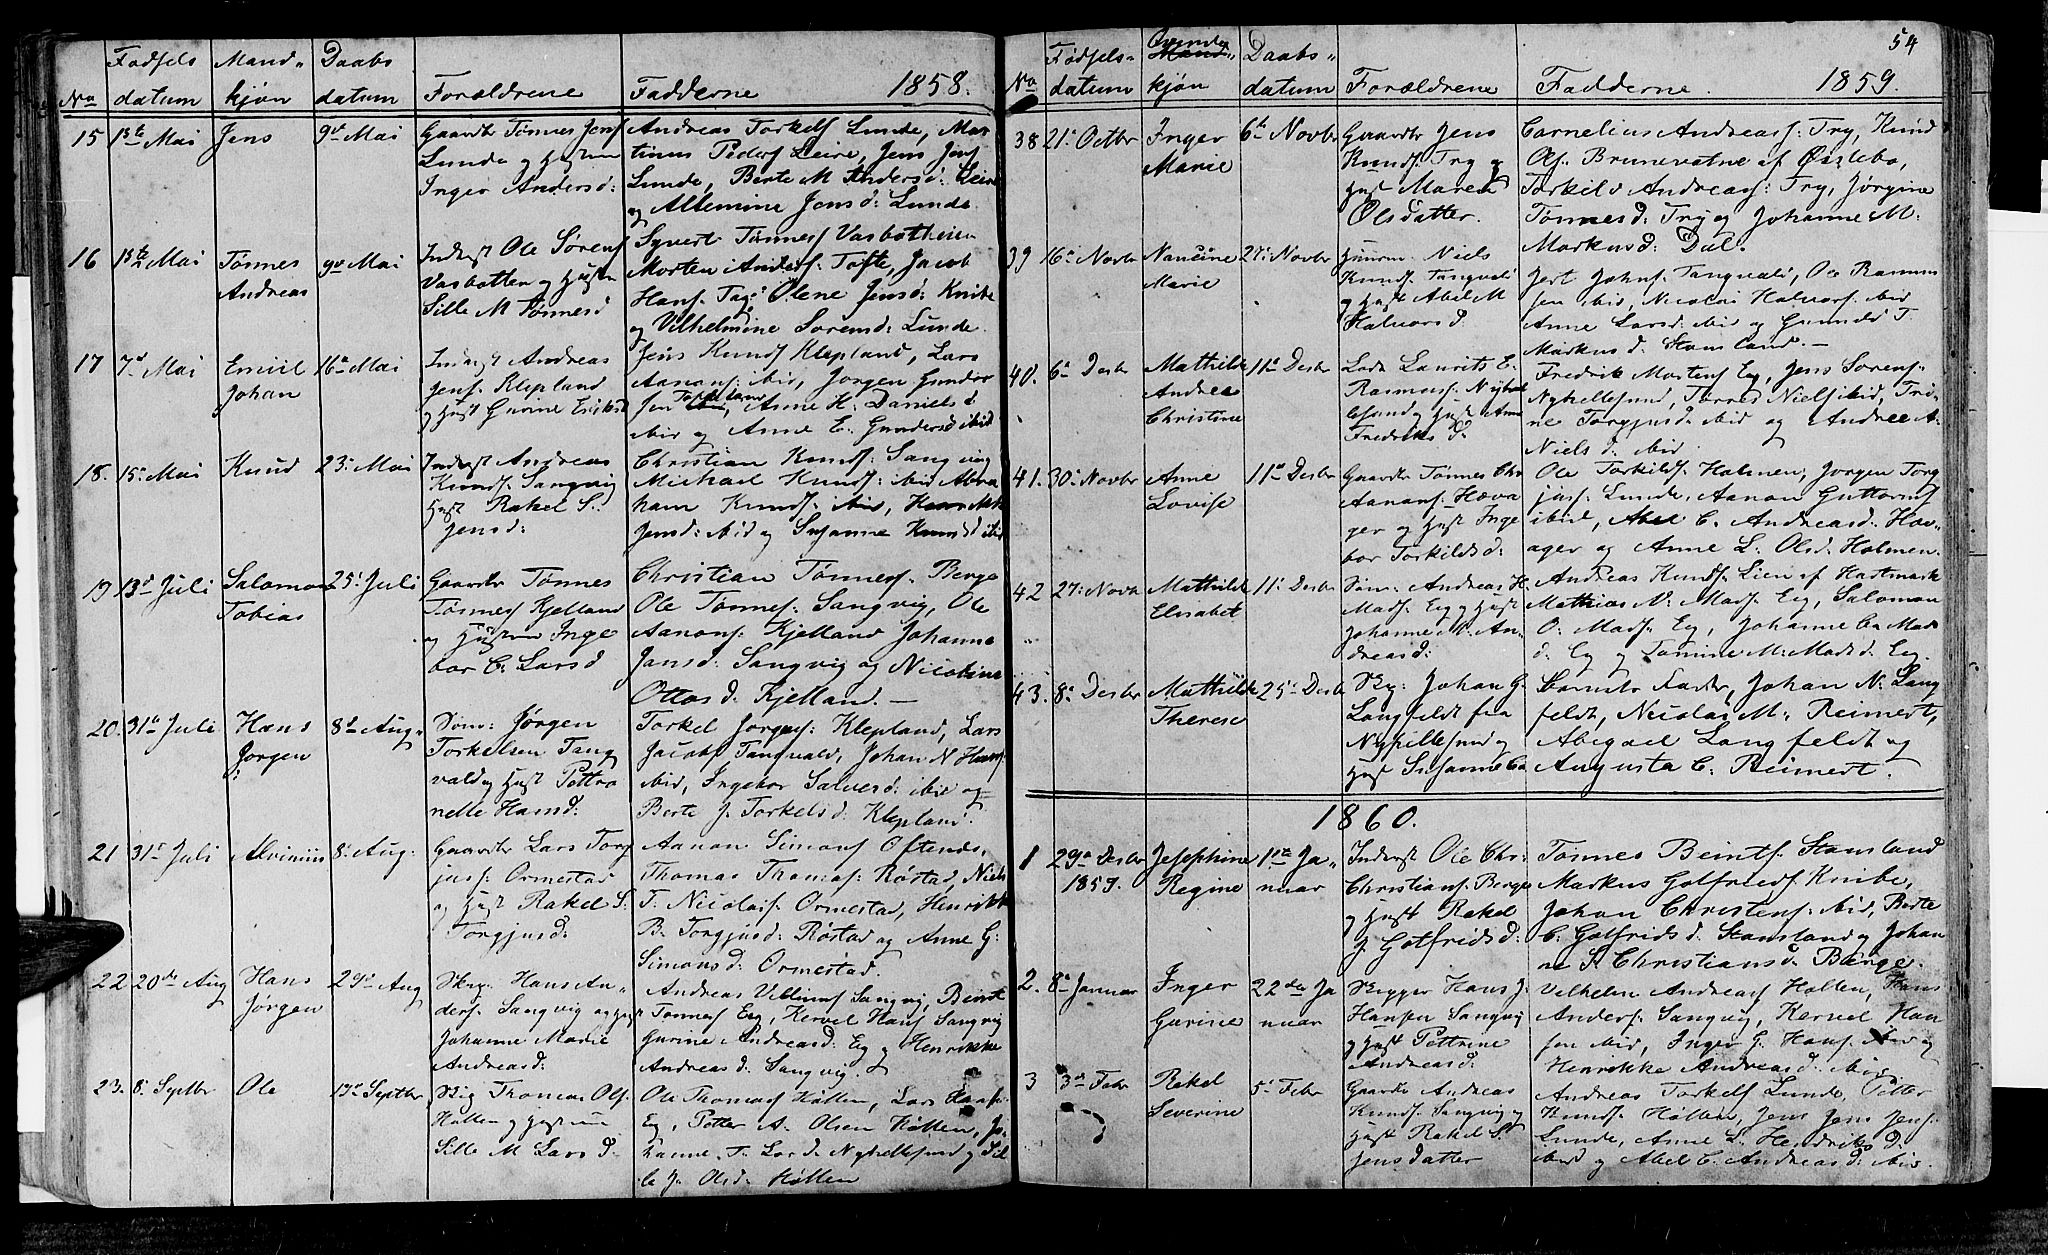 1858.
No Fødsels datum Mandkjøn Daabs datum Forældrene Fadderne
15 1ste Mai Jens 9de Mai
Gaardbr Tønnes Jens
Lunde og Hustru
Inger Andersd:
Andreas Torkels Lunde, Mar
tinus Peders Leire, Jens Jens
Lunde, Berte M Andersd: Leire
og Altemine Jensd: Lunde
16 13de Mai Tønnes Andreas 9de Mai
Inderst Ole Sørens
Vasbotten og Hustru
Sille M Tønnesd
Syvert Tønnes Vasbotheien
Morten Anders: Tofte, Jacob
Hans Olene Jensd: Knibe
og Vilhelmine Sorensd: Lunde.
17 7de Mai Emiil Johan 16de Mai
Inderst Andreas
Jens Klepland
og Hust Gurine Eriksd
Jens Knuds Klepland, Lars
Aanons: ibid, Jorgen Gunder
sen Anne H. Daniels d:
ibid og Anne E. Gundersd ibid
18. 15de Mai Knud 23de Mai
Inderst Andreas
Knuds Sangvig
Hust Rakel S.
Jensd:
Christian Knuds: Sangvig
Michael Knuds: ibid Abra
ham Knuds: ibid, Henrikke
Jensd: ibid og Susanne Knudsd ibid
19 13de Juli Salomon Tobias 25de Juli
Gaardbr Tønnes
Tønnes Kjelland
og Hustru Inge
bor C. Larsd
Christian Tønnes: Berge
Ole Tønnes: Sangvig, Ole
Aanons: Kjelland Johanne
Jensd: Sangvig og Nicoline
Ottos d: Kjelland. —
20. 31te Juli Hans Jørgen 8de Aug.
Søm: Jørgen
Torkelsen Tang
vald og Hust Pettro
nelle Hansd:
Torkel Jørgens: Klepland, Lars
Jacobs Tangvald, Johan N Hans:
ibid, Ingebor Salvesd: ibid og
Berte J. Torkelsd: Klepland.
21 31te Juli Alvinius 8de Aug.
Gaardbr Lars Torg
jus: Ormestad
og Hust Rakel S.
Torgjusd:
Aanon Simons Oftenes,
Thomas Thomas: Røstad, Niels
T. Nicolais: Ormestad, Henrikke
B. Torgjusd: Røstad og Anne G:
Simons d: Ormestad.
22 20de Aug Hans Jørgen 29de Aug
Skrr: Hans An
ders: Sangvig og Hust
Johanne Marie
Andreasd:
Andreas Sangvig, Beint
Tønnes Eeg, Kervel Hans Sangvig
Gurine Andreasd: Eeg og Henrikke
Andreasd: Sangvig.
23. 8de Septbr Ole 19de Septbr
Thomas Ols
Holten og Hustru
Sille M Lars d.
Ole Thomas Holten, Lars Hans:
Eeg, Petter A. Olsen Holten, Jo
hanne T. Lars d: Nyhellesund og Sil
le J. Olsd: Holten
54
1859.
No Fødsels-datum Qvinde kjøn Daabs-datum Forældrene Fadderne.
38 21de Octbr Inger Marie 6te Novbr
Gaardbr Jens
Knuds. Try og
Hust Maren
Olsdatter.
Cornelius Andreas: Try, Knud
Ols. Brunevatne af Øislebø,
Torkild Andreas: Try, Jørgine
Tønnesd: Try og Johanne M.
Markusd: Dal.
39 16de Novbr Nancine Marie 27de Novbr
Huusm. Niels
Knuds. Tangvald
og Hust Abel M
Halvorsd.
Jert Johns: Tangvald, Ole Rasmus
sen ibid, Nicolai Halvors: ibid
Anne Larsd: ibid og Gunild T.
Markus d: Stausland. —
40. 6te Desbr Mathilde Andrea Christine 11te Desbr
Lods Laurits E.
Rasmus: Nyhel
lesund og Hust Anne
Fredriks d.
Fredrik Mortens Eeg, Jens Sorens:
Nyhellesund, Tarres Niels ibid, Tri
ne Torgjusd: ibid og Andrea A.
Niels d: ibid.
41. 30te Novbr Anne Lovise 11te Desbr
Gaardbr Tønnes Chr
Aanons: Hæva
ger og Hust Inge
bor Torkildsd:
Ole Torkilds: Holmen, Jorgen Torg
jus: Lunde, Aanon Guttorms
ibid, Abel C. Andreasd: Hæv
ager og Anne L. Olsd: Holmen.
42 27de Novbr Mathilde Elisabet 11te Desbr
Søm: Andreas H
Mads: Eeg og Hust
Johanne M. An
dreasd:
Andreas Knuds: Lien af Hartmark
Mathias N. Mads: Eeg, Salomon
O. Mads: Eeg, Johanne Ca Mads
d. Eeg og Tomine M. Mads d. Eeg.
43. 8de Desbr Mathilde Therese 25de Desbr
Johan G.
Langfeldt fra
Nyhellesund og
Hust Susanne Ca
Barnets Fader, Johan N. Lang
feldt, Nicolai M. Reimert,
Abigael Langfeldt og
Augusta C. Reimert.
1860.
1 29de Desbr 1859. Josephine Regine 1ste Januar
Inderst Ole Chr.
Christians: Berge
og Hust Rakel
J. Gotfridsd:
Tonnes Beints: Stausland
Markus Gotfreds Knibe,
Johan Christens: ibid, Berte
C. Gotfrids d. Stausland og Johan
ne S. Christiansd. Berge.
2. 8de Januar Inger Gurine 22de Januar
Bygger Hans J.
Hansen Sangvig
og Hust Pettrine
Andreasd:
Vilhelm Andreas Holten, Hans
Anders: Sangvig, Kervel Han
sen ibid, Inger G. Hans: ibid og
Henrikke Andreasd: ibid.
3 3de Febr Rakel Severine 5te Febr
Gaardbr Andreas
Knuds: Sangvig og
Hust Rakel S.
Jensdatter
Andreas Torkels Lunde, Petter
Knuds: Holten, Jens Jens Jens:
Lunde, Anne L. Hendriks d.
ibid og Abel C. Andreas d: ibid.